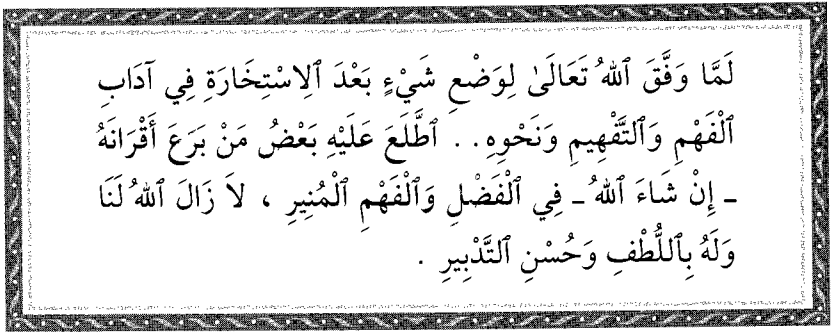 لَمَّا وَفَّقَ ٱللهُ تَعَالَىٰ لِوَضْعِ شَيْءٍ بَعْدَ ٱلِاسْتِخَارَةِ فِي آدَابِ
ٱلْفَهْمِ وَٱلتَّفْهِيمِ وَنَحْوِهِ . . ٱطَّلَعَ عَلَيْهِ بَعْضُ مَنْ بَرَعَ أَقْرَانَهُ
ـ إِنْ شَاءَ ٱللهُ ـ فِي ٱلْفَضْلِ وَٱلْفَهْمِ ٱلْمُنِيرِ ، لاَ زَالَ ٱللهُ لَنَا
وَلَهُ بِٱللُّطْفِ وَحُسْنِ ٱلتَّدْبِيرِ .